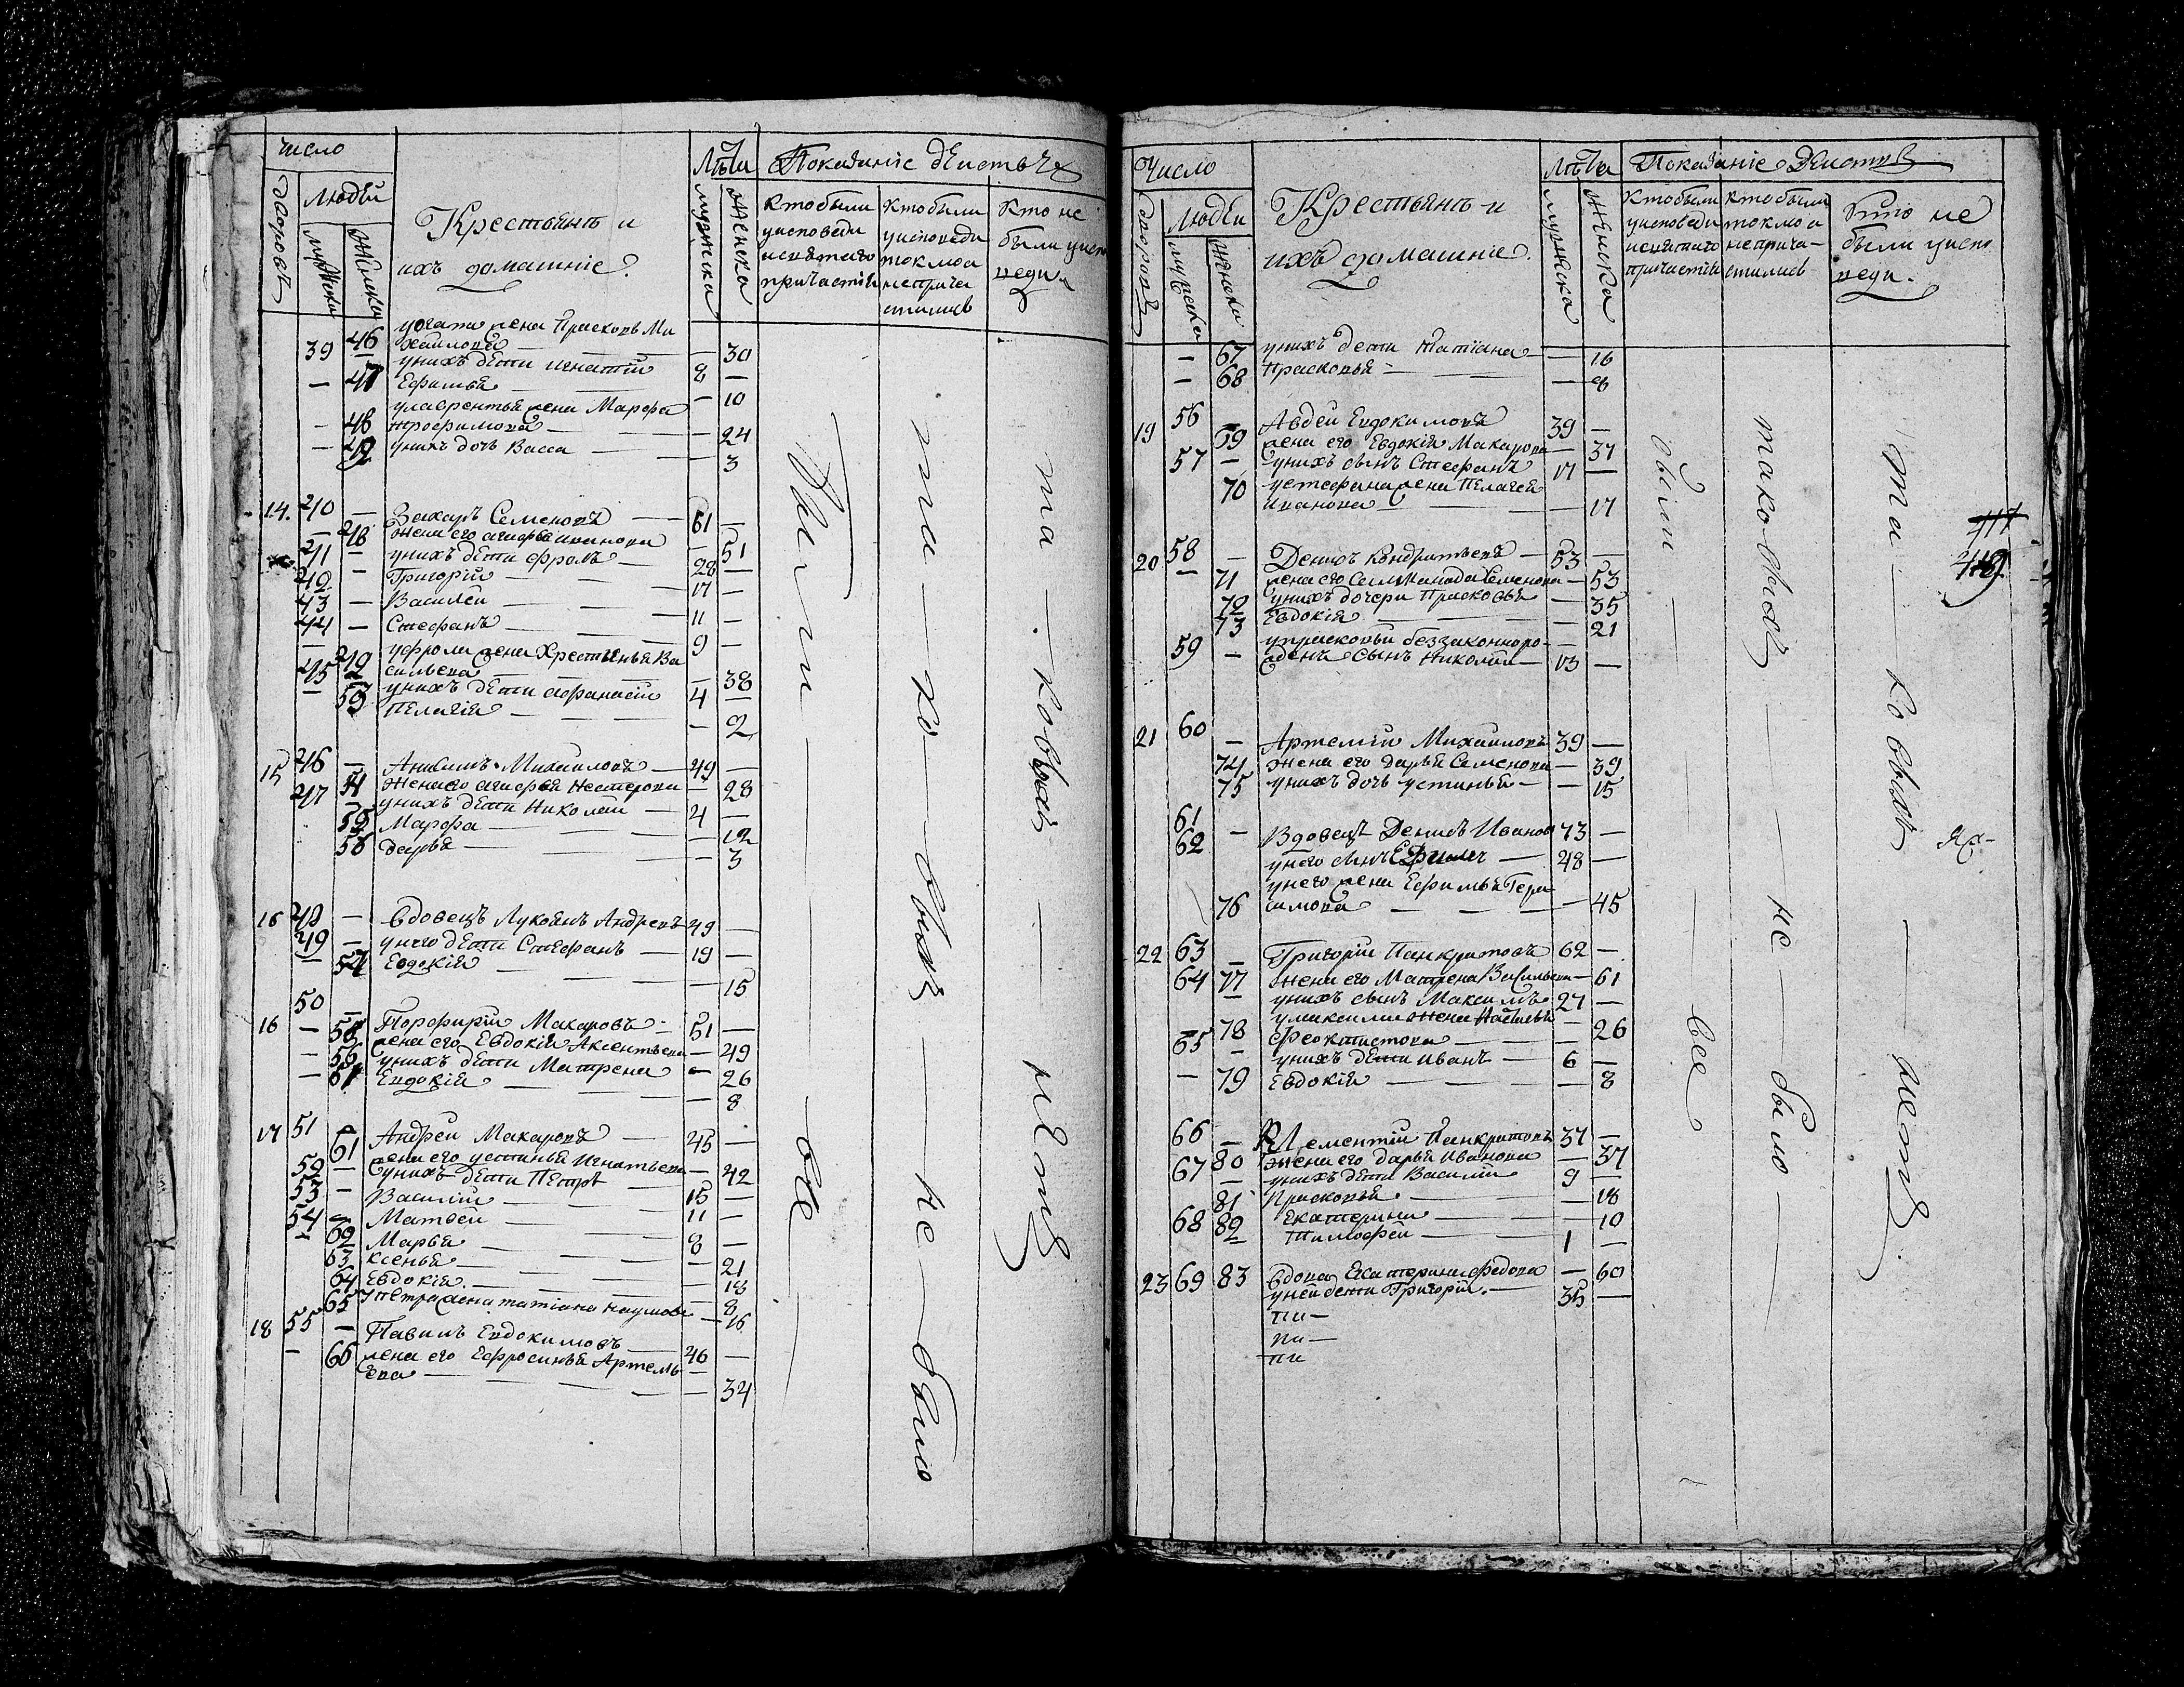 Число
Лѣта
Показаніе действъ
дворовъ
людей
мужеска
женска
Крестьянъ и
ихъ домашніе.
мужска
женска
Кто были
у исповеди
и святаго
причастія
Кто были
у исповеди
токмо а
не прича
стились
Кто не
были у испо
веди.
46 жена Прасковья Ми
хайлова — 30
39 — у нихъ дети Игнатій 8 —
— 47 Ефимья — 10
у Лаврентья жена Марфа
— 48 Трофимова — 24
— 49 у нихъ дочь Васса — 3
14. 40 — Захаръ Семеновъ 61 —
— 48 Жена его Агафья Иванова — 51
41 — у нихъ дети Фролъ 28 —
42 — Григорій 17 —
43 — Василей 11 —
44 — Стефанъ 9 —
— 49 у Фрола жена Хрестинья Ва
сильева — 38
45 — у нихъ дети Афанасій 4 —
— 53 Пелагія — 2
15 46 — Анисимъ Михайловъ 49 —
51 Жена его Агафья Нестерова — 28
47 — у нихъ дети Николай 4 —
52 Марфа — 12
53 Дарья — 3
16 48 — Вдовецъ Лукоянъ Андреевъ 49 —
49 — у него дети Стефанъ 19 —
— 54 Евдокія — 15
16 50 — Порфирій Макаровъ 51 —
— 55 жена его Евдокія Аксентьева — 49
— 56 у нихъ дети Матрена — 26
— 61 Евдокія — 8
17 51 — Андрей Макаровъ 45 —
61 жена его Устинья Игнатьева — 42
52 — у нихъ дети Петръ 15 —
53 — Василій 11 —
54 — Матвей 8 —
— 62 Марья — 21
63 Ксенья — 18
64 Евдокія — 8
65 у Петра жена Татіана Наумова — 16
18 55 — Павилъ Евдокимовъ 46 —
— 66 жена его Ефросинья Артемь
ева — 34
были все
та ко выхъ не было
та ковыхъ нетъ
Число
Лѣта
Показаніе Действ
дворовъ
людей
мужеска
женска
Крестьянъ и
ихъ домашніе.
мужска
женска
Кто были
у исповеди
и святаго
причастія
Кто были
токмо а
не прича-
стились
Кто не
были у испо
веди.
— 67 у нихъ дети Татіана — 16
— 68 Прасковья — 8
19 56 — Авдей Евдокимовъ 39 —
69 жена его Евдокія Макарова — 37
57 — у нихъ сынъ Стефанъ 17 —
70 у Стефана жена Пелагея
Иванова — 17
20 58 — Денисъ Кондратьевъ 53 —
— 71 жена его Семена — 53
72 у нихъ дочери Прасковья — 35
73 Евдокія — 21
59 — у Прасковьи беззаконноро-
жденъ сынъ Николай 13 —
21 60 — Артемій Михайловъ 39 —
74 Жена его Дарья Семенова — 39
75 у нихъ дочь Устинья — 15
61 — Вдовецъ Денисъ Ивановъ 73 —
62 у него сынъ Ефимъ 48 —
у него жена Ефимья Гера
76 симова — 45
22 63 — Григорій Панкратовъ 62 —
77 Жена его Матрена Васильева — 61
64 — у нихъ сынъ Максимъ 27 —
у Максима жена
78 Феоктистова — 26
65 — у нихъ дети Иванъ 6 —
— 79 Евдокія — 8
66 — Клементій Панкратовъ 37 —
80 Жена его Дарья Иванова — 37
67 — у нихъ дети Василій 9 —
81 Прасковья — 18
82 Екатерина — 10
68 — Тимофей 1 —
23 69 83 Вдова Екатерина Федова — 60
у ней дети Григорій. 35 —
были все
таковыхъ не было
та ковыхъ нетъ
417